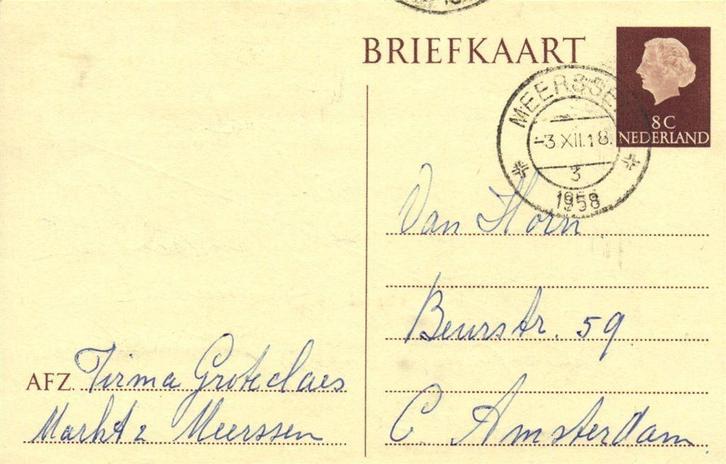 BRIEFKAART
8 C
NEDERLAND
MEERSSE
-3.XII.18.
3
1958
Van Horn
Beurstr. 59.
C. Amsterdam.
AFZ. Firma Groteclaes
Markt 2 Meerssen